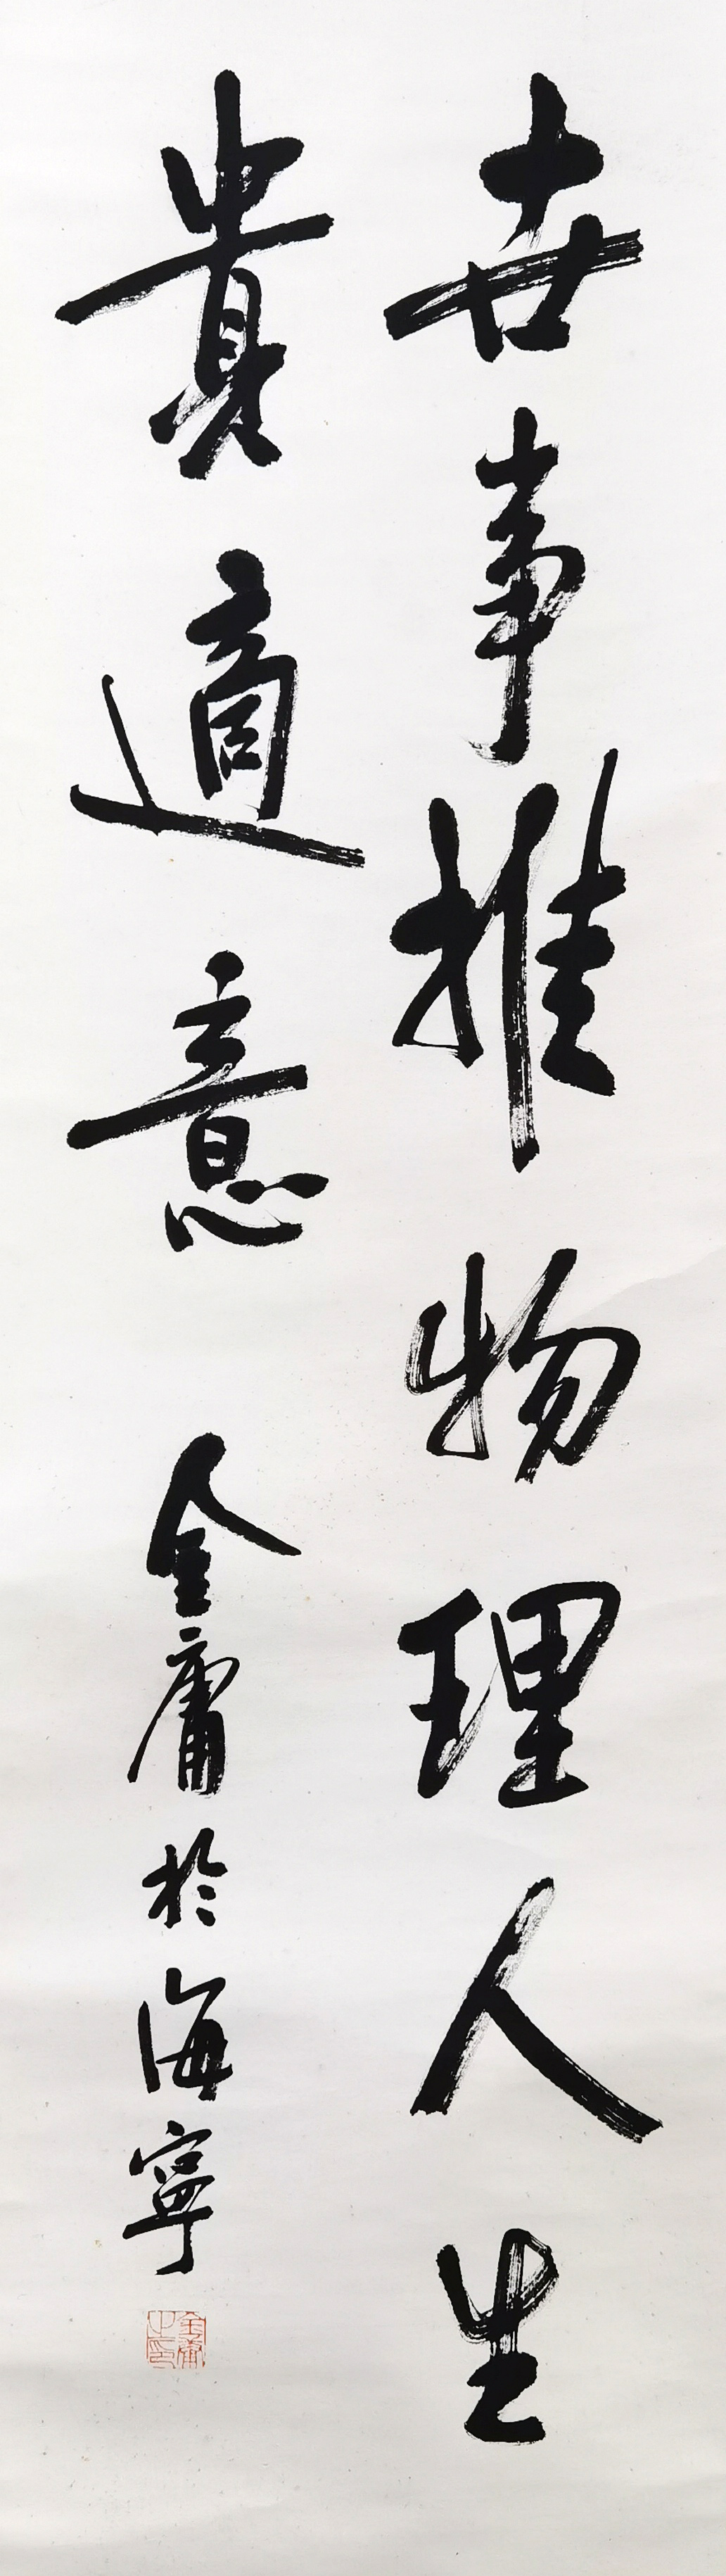 世事推物理人生
貴適意
金庸於海寧
金庸之印